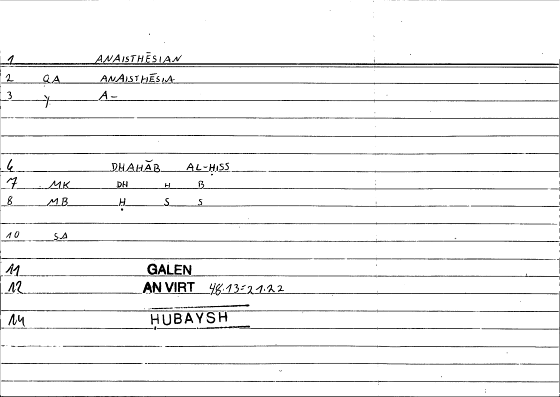 1 ANAISTHĒSIAN
2 QA ANAISTHĒSIA
3 γ A–
6 DHAHĀB AL-ḤISS
7 MK DH H B
8 MB Ḥ S S
10 SA
11 GALEN
12 AN VIRT 48.13=21.22
14 ḤUBAYSH